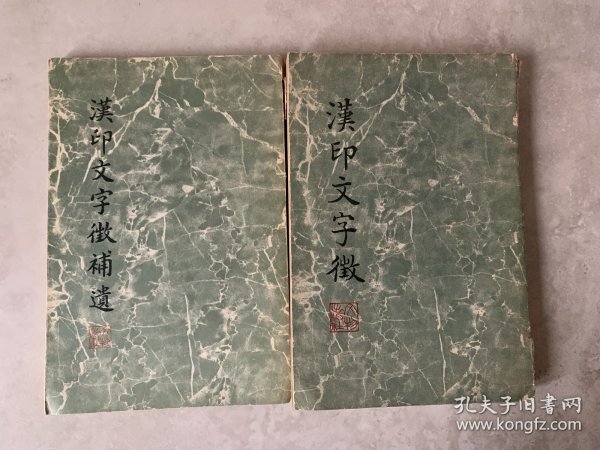 漢印文字徵補遺
漢印文字徵
孔夫子旧書网
www.kongfz.com